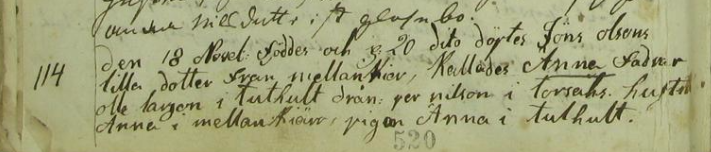 den 18 Novel: föddes och d 20 dito döptes Jöns olsons
114 lilla dotter från mellankiär, kallades Anna fadrar
olle larson i tuthult drän: per nilson i torsahs. hustr
Anna i mellankiärr, pigan Anna i tuthult.
520